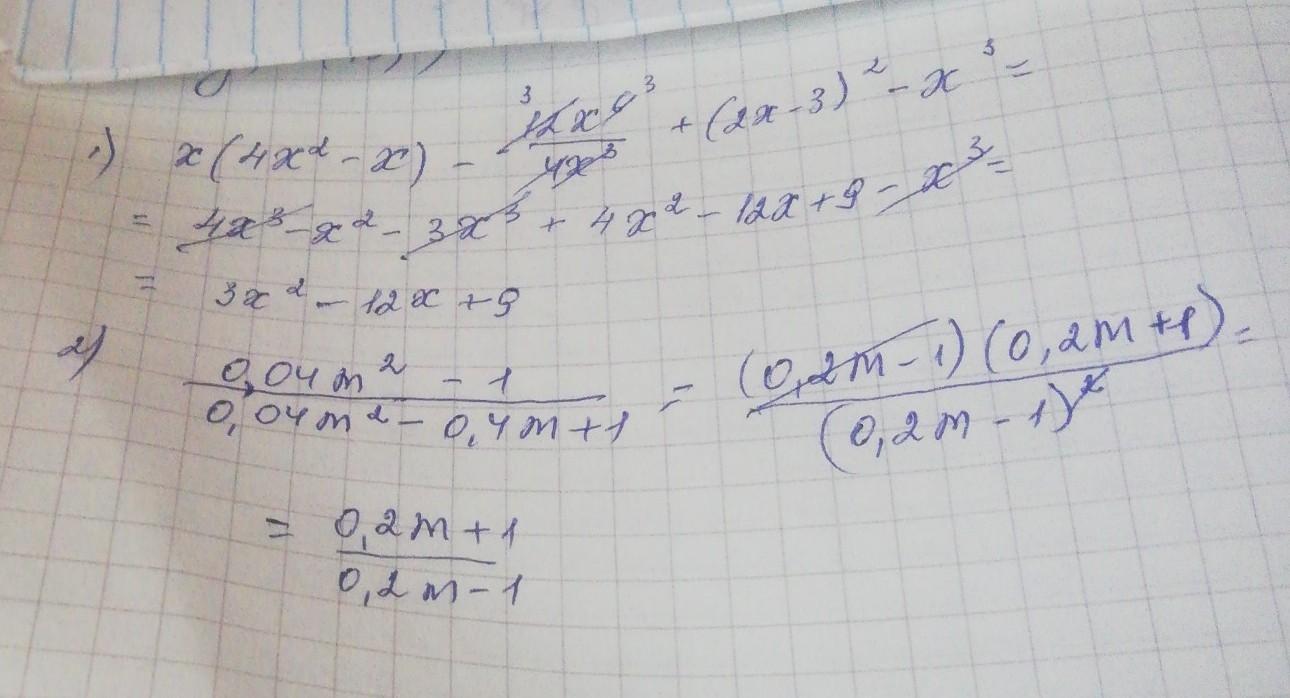 1) x(4x² - x) - 12x⁶/4x³ + (2x-3)² - x³ =
= 4x³ - x² - 3x³ + 4x² - 12x + 9 - x³ =
= 3x² - 12x + 9
2) 0,04m² - 1 / 0,04m² - 0,4m + 1 = (0,2m - 1)(0,2m + 1) / (0,2m - 1)² =
= 0,2m + 1 / 0,2m - 1